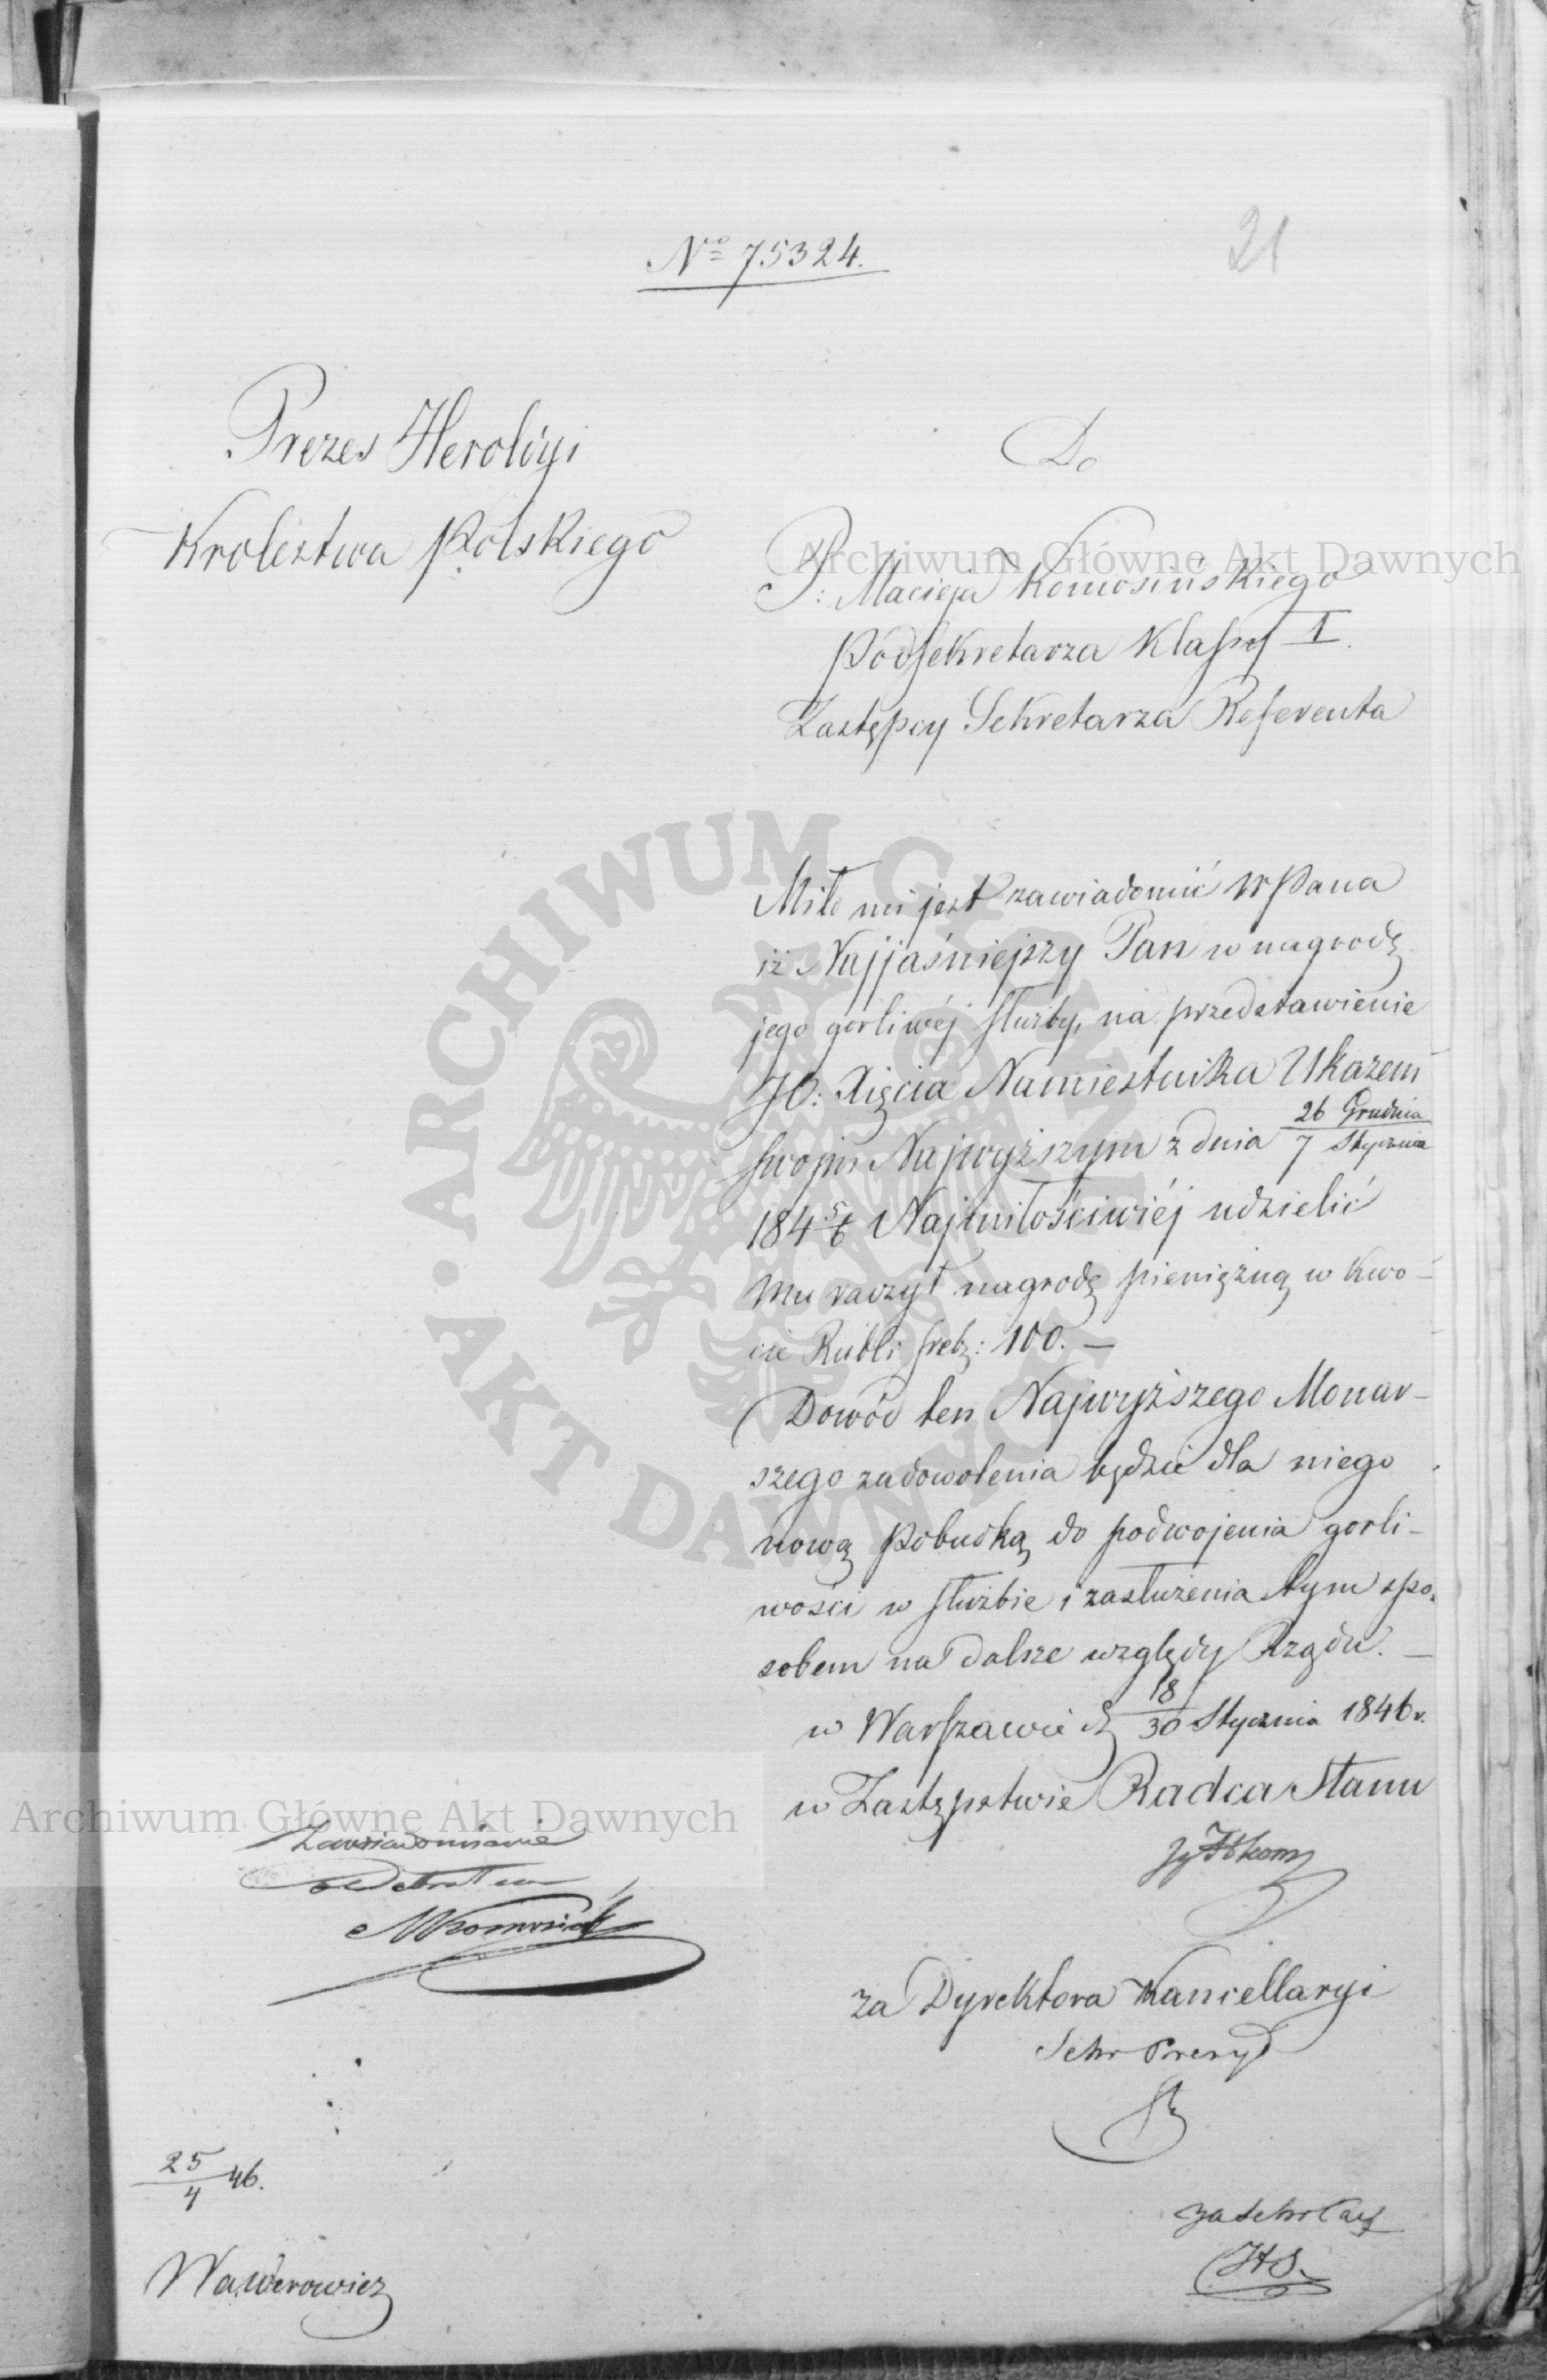 No 75324.
21
Prezes Heroldyi
Krolestwa Polskiego
Do
P: Macieja Komosińskiego
Podsekretarza Klassy I.
Zastępcy Sekretarza Referenta
Miło mi jest zawiadomić WPana
iż Najjaśniejszy Pan w nagrodę
jego gorliwéj służby, na przedstawienie
JO: Xięcia Namiestnika Ukazem
swojm Najwyższym z dnia 26 Grudnia / 7 Stycznia
184 5/6 Najmiłościwiéj udzielić
mu raczył nagrodę pieniężną w kwo-
cie Rubli srebr: 100. —
Dowód ten Najwyższego Monar-
szego zadowolenia będzie dla niego
nową pobudką do podwojenia gorli-
wości w służbie i zasłużenia tym spo-
sobem na dalsze względy Rządu. —
w Warszawie d 18/30 Stycznia 1846 r.
w Zastępstwie Radca Stanu
za Dyrektora Kancellaryi
Sekr Prezyd
Zawiadomienie
odebrałem
MKomosiński
25/4 46.
Wawerowicz
za Sekr
HS.
Archiwum Główne Akt Dawnych
Archiwum Główne Akt Dawnych
ARCHIWUM GŁÓWNE · AKT DAWNYCH ·